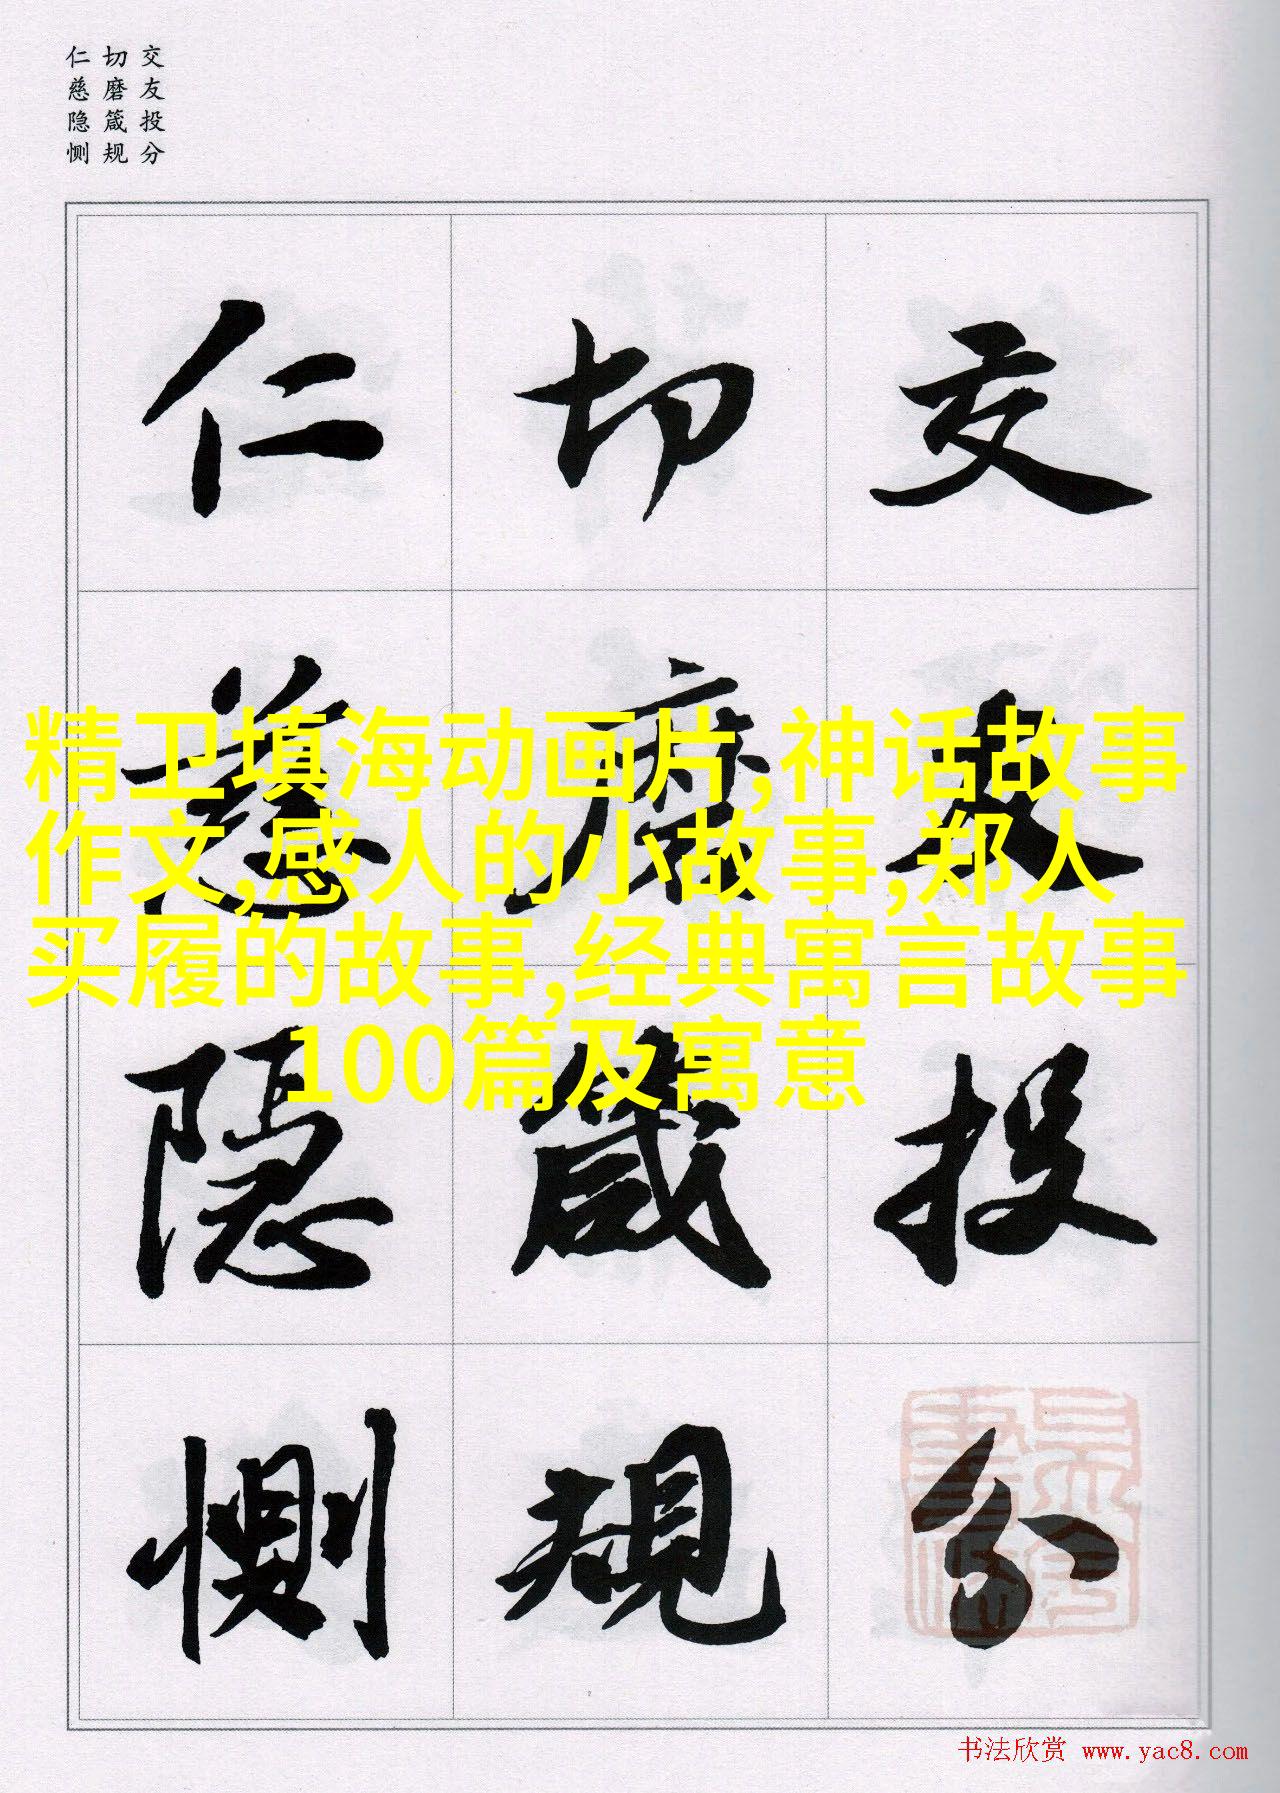 交友投分
切磨箴规
仁慈隐恻
交友投分
切磨箴規
仁慈隐恻
精卫填海动画片,神话故事
作文,感人的小故事,郑人
买履的故事,经典寓言故事
100篇及寓意
书法欣赏 www.yac8.com